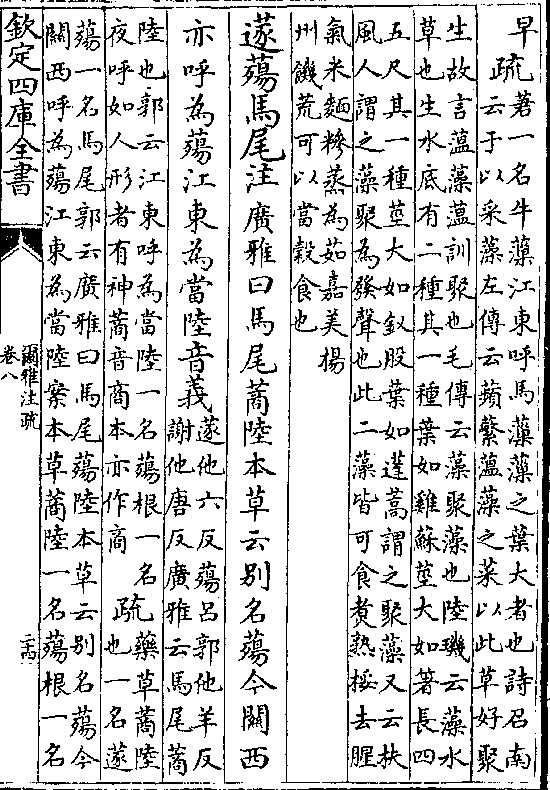 早
疏
莙一名牛薻江東呼馬薻薻之葉大者也詩召南
云于以采藻左傳云蘋蘩薀藻之菜以此草好聚
生故言薀藻薀訓聚也毛傳云藻聚藻也陸璣云藻水
草也生水底有二種其一種葉如雞蘇莖大如箸長四
五尺其一種莖大如釵股葉如蓬蒿謂之聚藻又云扶
風人謂之藻聚為發聲也此二藻皆可食煑熟挼去腥
氣米麵糝蒸為茹嘉美揚
州饑荒可以當穀食也
蓫薚馬尾注廣雅曰馬尾蔏陸本草云別名薚今關西
亦呼為薚江東為當陸音義
蓫他六反薚呂郭他羊反
謝他唐反廣雅云馬尾蔏
陸也郭云江東呼為當陸一名薚根一名
夜呼如人形者有神蔏音商本亦作商
疏
藥草蔏陸
也一名蓫
薚一名馬尾郭云廣雅曰馬尾薚陸本草云別名薚今
關西呼為薚江東為當陸案本草蔏陸一名薚根一名
欽定四庫全書
爾雅注疏
卷八